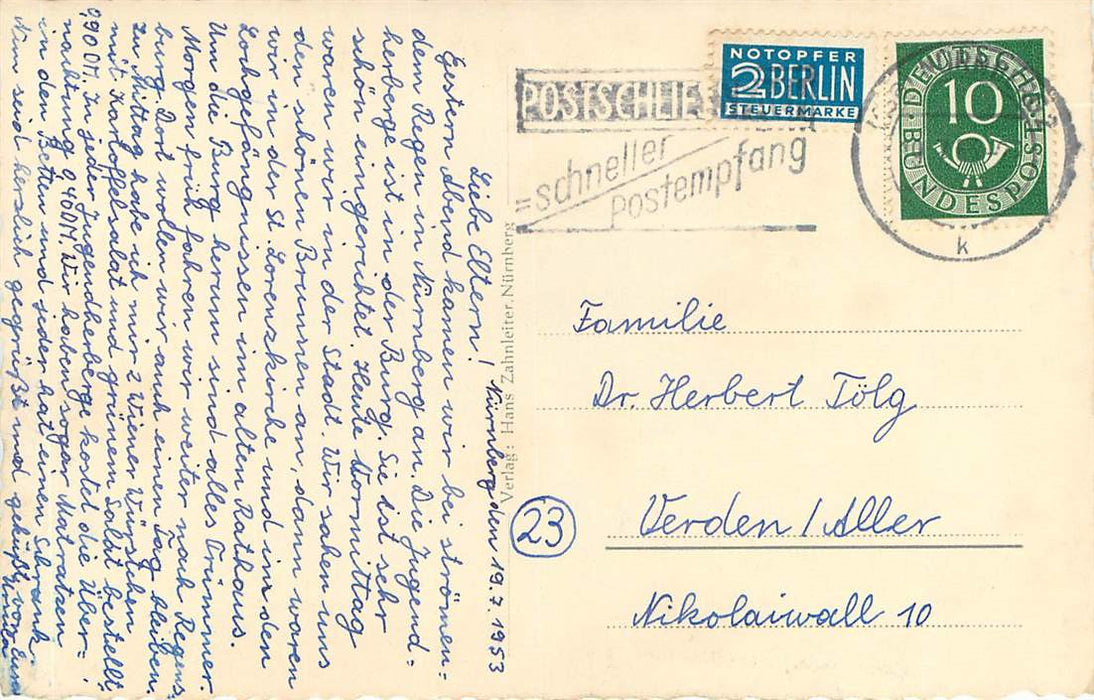 Nürnberg den 19.7.1953
Liebe Eltern!
Gestern Abend kamen wir bei strömen-
dem Regen in Nürnberg an. Die Jugend-
herberge ist in der Burg. Sie ist sehr
schön eingerichtet. Heute Vormittag
waren wir in der Stadt. Wir sahen uns
den schönen Brunnen an, dann waren
wir in der St. Lorenzkirche und in den
Lochgefängnissen im alten Rathaus.
Um die Burg herum sind alles Trümmer.
Morgen früh fahren wir weiter nach Regens-
burg. Dort wollen wir auch einen Tag bleiben.
Zu Mittag habe ich mir 2 Wiener Würstchen
mit Kartoffelsalat und grünen Salat bestellt,
0,90 DM. In jeder Jugendherberge kostet die Über-
nachtung 0,40 DM. Wir haben sogar Matratzen
in den Betten und jeder hat einen Schrank.
Nun seid herzlich gegrüßt und geküßt von Eurer
Verlag: Hans Zahnleiter, Nürnberg
POSTSCHLIE
=schneller
Postempfang
NOTOPFER
2 BERLIN
STEUERMARKE
10
DEUTSCHE
BUNDESPOST
k
Familie
Dr. Herbert Tölg
23
Verden / Aller
Nikolaiwall 10